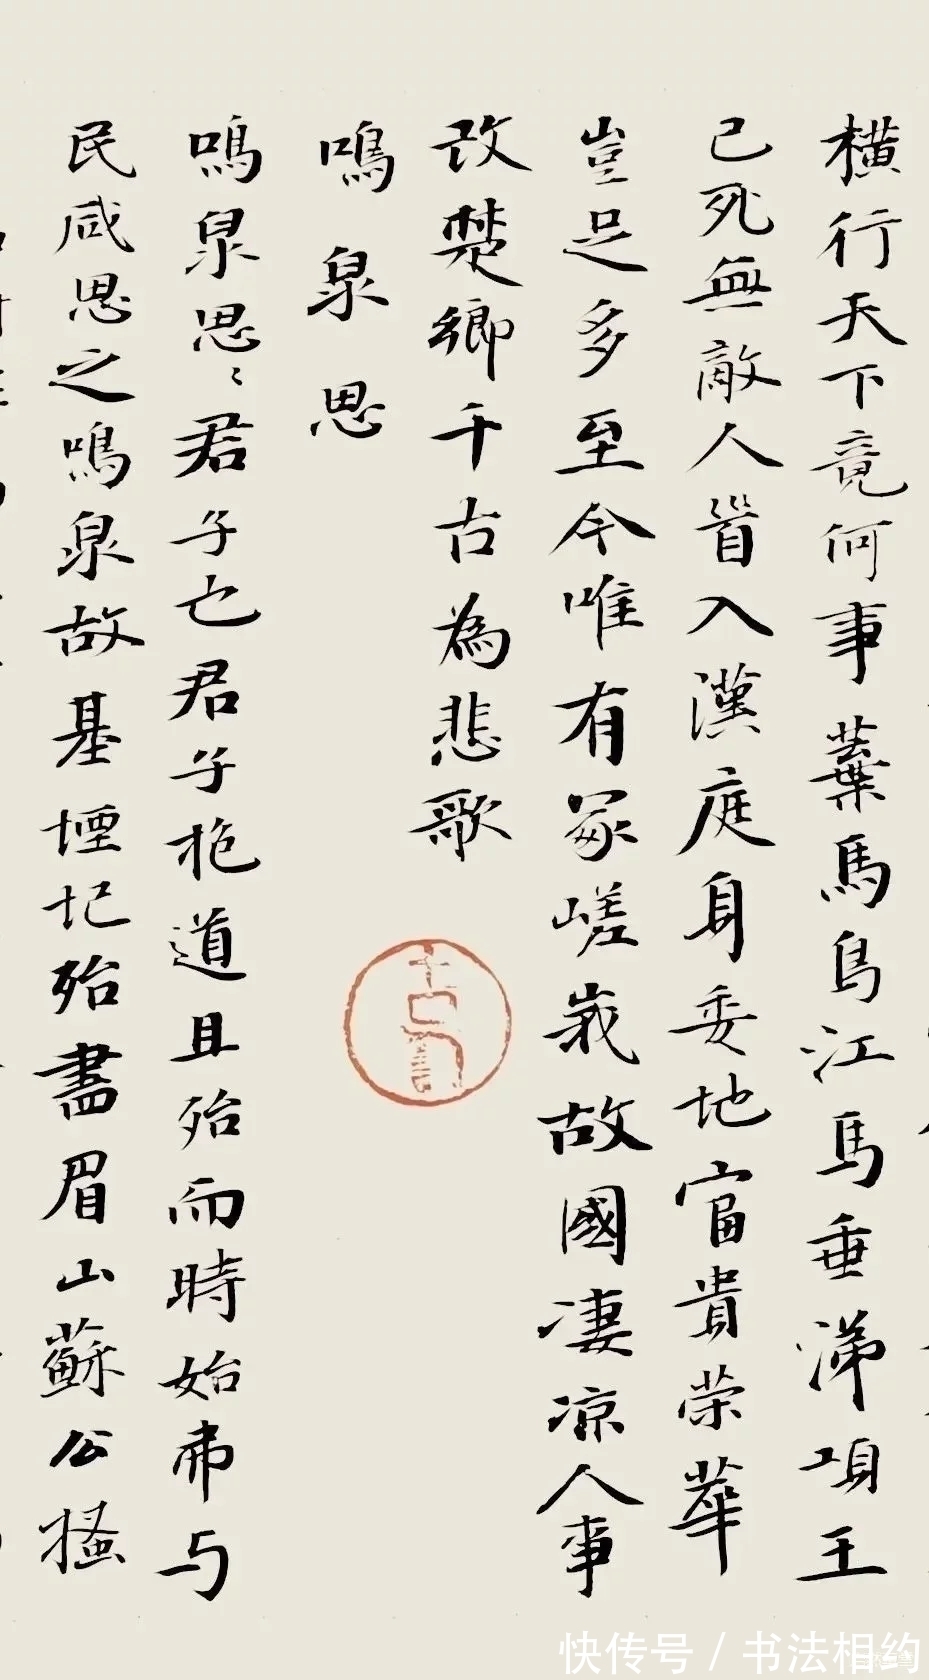 横行天下竟何事葉馬烏江馬垂涕項王
已死無敵人首入漢庭身委地富貴荣華
豈足多至今唯有冢嵯峩故國凄凉人事
改楚鄉千古為悲歌
鳴泉思
鳴泉思思君子也君子抱道且殆而時始弗与
民咸思之鳴泉故基堙圮殆盡眉山蘇公搔
快传号 / 书法相约